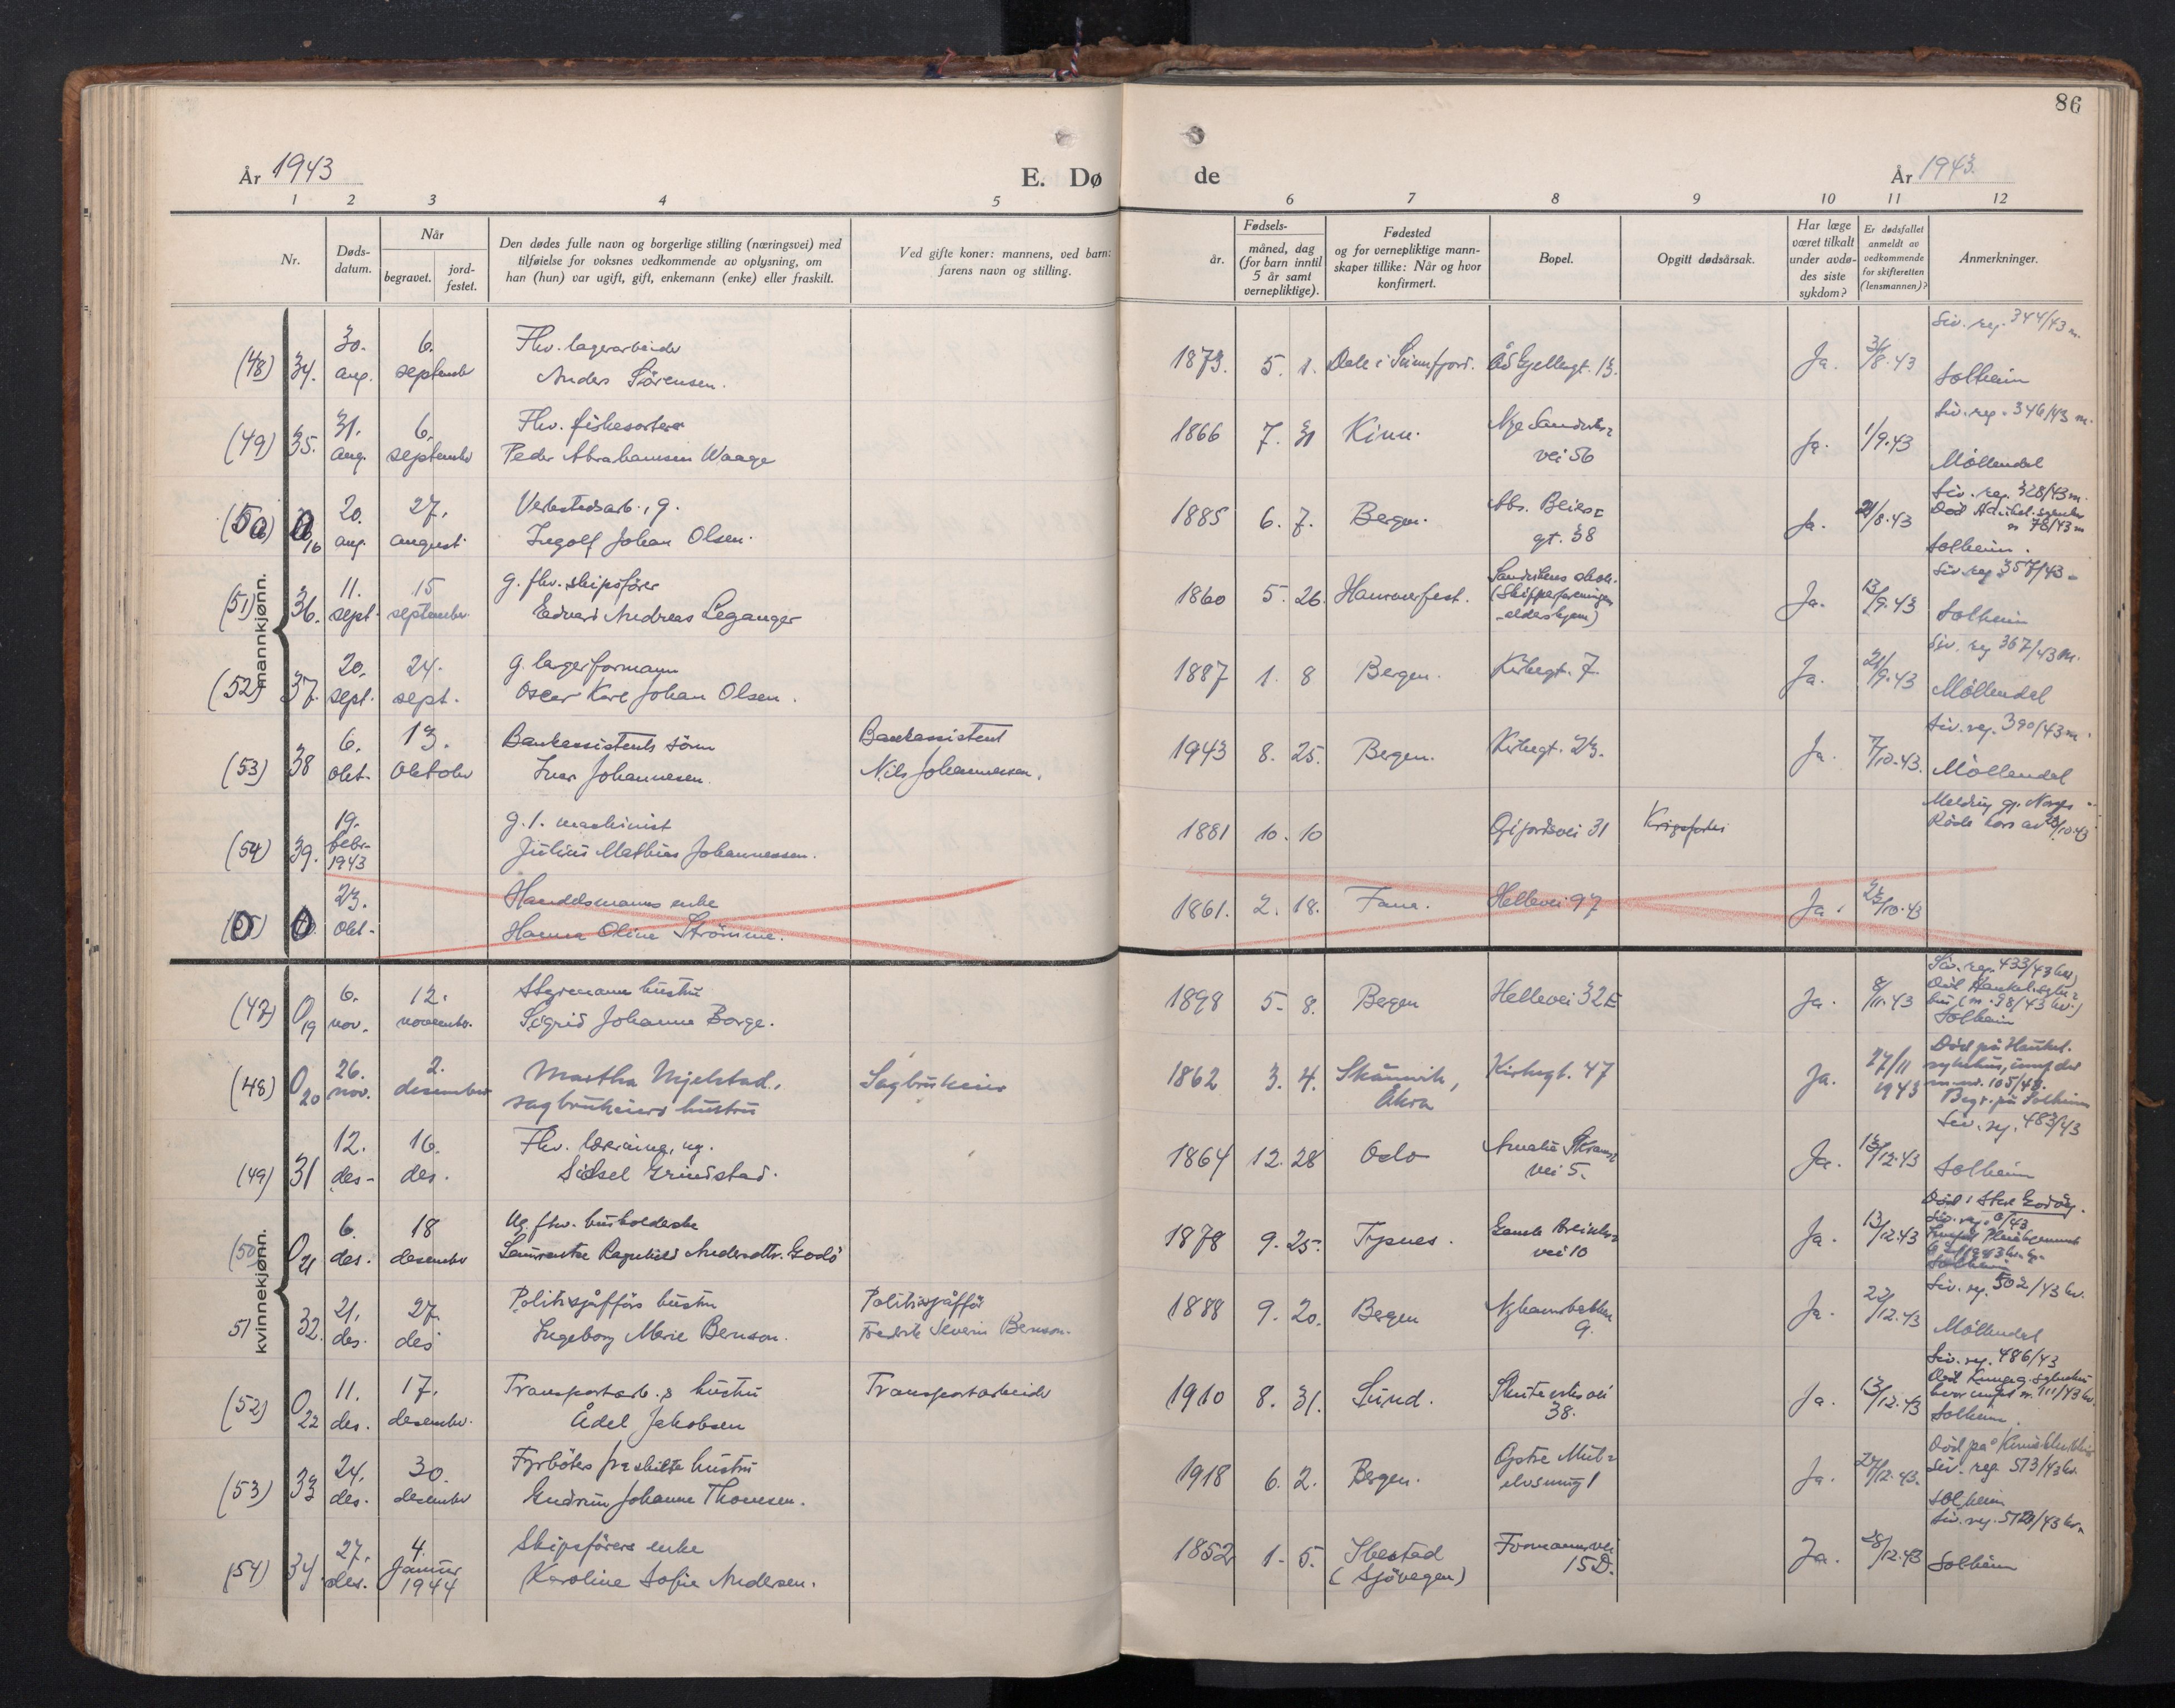 86
År 1943
E. Dø de
År 1943.
1 2 3 4 5 6 7 8 9 10 11 12
Nr.
Døds-
datum.
Når
begravet.
jord-
festet.
Den dødes fulle navn og borgerlige stilling (næringsvei) med
tilføielse for voksnes vedkommende av oplysning, om
han (hun) var ugift, gift, enkemann (enke) eller fraskilt.
Ved gifte koner: mannens, ved barn:
farens navn og stilling.
Fødsels-
år.
måned, dag
(for barn inntil
5 år samt
vernepliktige).
Fødested
og for vernepliktige mann-
skaper tillike: Når og hvor
konfirmert.
Bopel.
Opgitt dødsårsak.
Har læge
været tilkalt
under avdø-
des siste
sykdom?
Er dødsfallet
anmeldt av
vedkommende
for skifteretten
(lensmannen)?
Anmerkninger.
mannkjønn.
(48) 34. 30. aug. 6. september
Fhv. lagerarbeider
Anders Sörensen.
1873. 5. 1. Dale i Sunnfjord. 13. Ja. 31/8.43
Siv. reg. 344/43 m.
Solheim
(49) 35. 31. aug. 6. september
Fhv. fiskesorterer
Peder Abrahamsen Waage
1866 7. 31 Kinn. Nye Sandviks-
vei 56
Ja. 1/9.43
Siv. reg. 346/43 m.
Möllendal
(50) 0 16 20. aug. 27. august
Verkstedsarb., g.
Ingolf Johan Olsen.
1885 6. 7. Bergen. Abs. Beiers-
gt. 38
Ja. 21/8.43
Siv. reg. 328/43 m.
Död Haukel. sykehus
nr 78/43 m
Solheim.
(51) 36. 11. sept. 15 september
g. fhv. skipsförer
Edvard Andreas Leganger
1860 5. 26. Hammerfest. Sandvikens
(Skipperforeningens
aldershjem)
Ja. 13/9.43
Siv. reg. 357/43
Solheim
(52) 37. 20. sept. 24. sept.
g. lagerformann
Oscar Karl Johan Olsen.
1887 1. 8 Bergen. Kirkegt. 7. Ja. 21/9.43
Siv. reg 367/43 m.
Möllendal
(53) 38 6. okt. 13. oktober
Bankassistents sönn
Iver Johannesen.
Bankassistent
Nils Johannesen.
1943 8. 25. Bergen. Kirkegt. 23. Ja. 7/10.43.
Siv. reg. 390/43 m.
Möllendal
(54) 39. 19. febr. 1943
g. 1. maskinist
Julius Mathias Johannessen.
1881 10. 10 31 Krigsforlis
Melding gj. Norges
Röde Kors av 20/10.43
0 23. okt.
Handelsmanns enke
Hanna Oline Strömme.
1861. 2. 18. Fana. Hellevei 97 Ja. 23/10.43
kvinnekjønn.
(47) 0 19 6. nov. 12. november.
Styrmanns hustru
Sigrid Johanne Borge.
1898 5. 8. Bergen Hellevei 32E Ja. 8/11.43
Siv. reg. 433/43 kv.
Död Haukel. syke-
hus (nr. 98/43 kv.)
Solheim
(48) 0 20 26. nov. 2. desember
Martha Mjelstad,
sagbrukeiers hustru
Sagbrukeier
1862 3. 4. Skånevik,
Åkra
Kirkegt. 47 Ja. 27/11 1943
Död på Haukel.
sykehus, innf. der
m. nr. 105/43.
Begr. på Solheim
(49) 31 12. des. 16. des.
Fhv. lærerinne, ug.
Sidsel Grindstad.
1864 12. 28 Oslo Amalie Skrams
vei 5.
Ja. 13/12.43
Siv. reg. 483/43
Solheim
(50) 0 21 6. des. 18 desember
Ug. fhv. husholderske
Laurentze Ragnhild Andersdtr. Godö
1878 9. 25. Tysnes. Gamle
vei 10
Ja. 13/12.43
Solheim
51 32. 21. des. 27. des
Politisjåförs hustru
Ingeborg Marie Benson.
Politisjåför
Fredrik Severin Benson.
1888 9. 20. Bergen Nyhavnsbakken
9.
Ja. 22/12.43
Siv. reg. 502/43 kv.
Möllendal
(52) 0 22 11. des. 17. desember.
Transportarb.s hustru
Ådel Jakobsen
Transportarbeider
1910 8. 31. Sund. Skuteviksvei
38.
Ja. 13/12.43
Siv. reg. 486/43
hvor innf. nr. 111/43 kv.
Solheim.
(53) 33 24. des. 30. desember
Fyrböters fraskilte hustru
Gudrun Johanne Thomsen.
1918 6. 2. Bergen. Östre Mul-
elvsmug 1
Ja. 27/12.43.
Död på Kvinneklinikken
Siv. reg. 513/43 kv.
Solheim
(54) 34. 27. des. 4. Januar 1944
Skipsförers enke
Karoline Sofie Andersen.
1852 1. 5. Ibestad
(Sjövegen)
Formannsvei
15D.
Ja. 28/12.43
Solheim